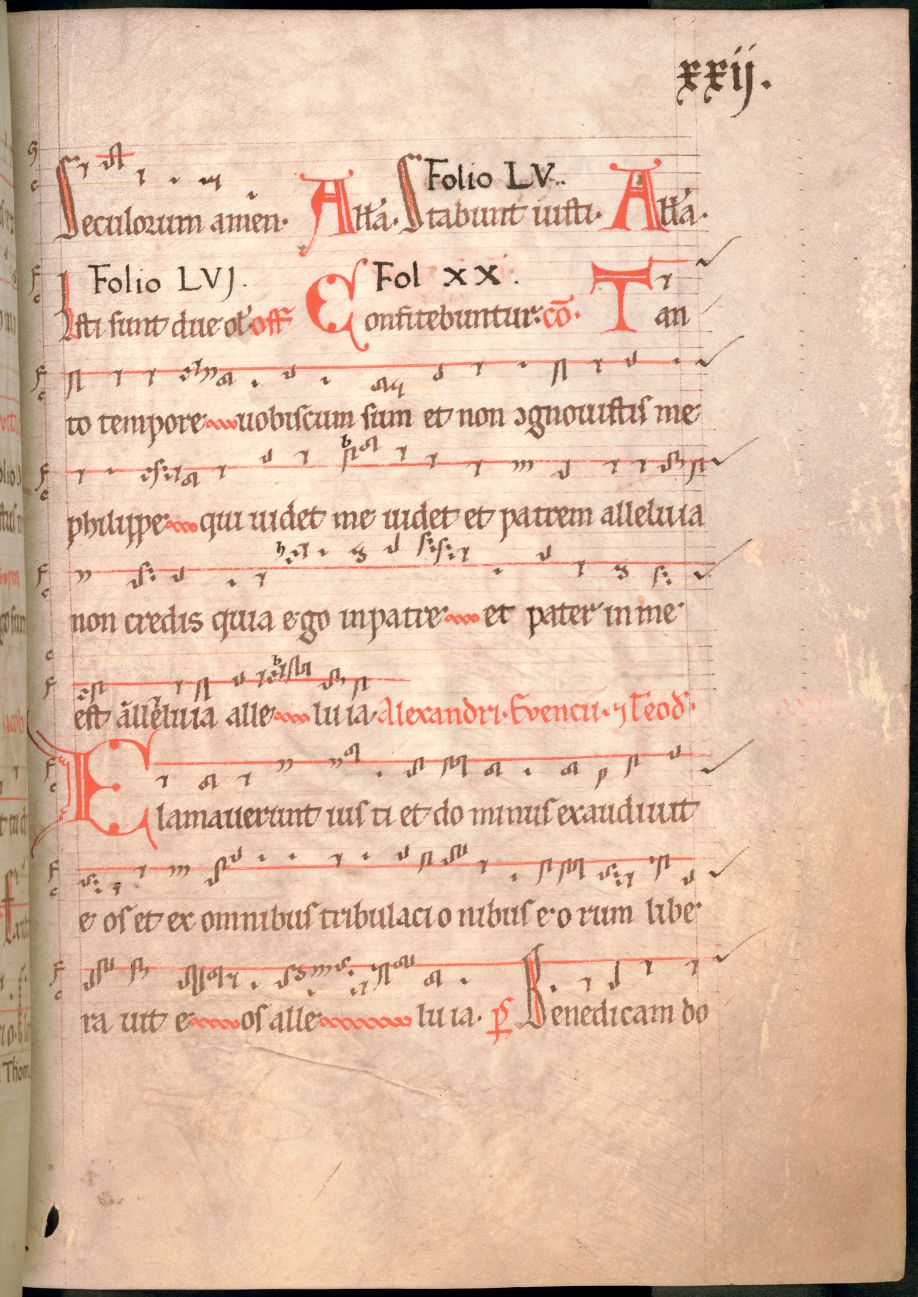 xxij.
Folio LV..
Seculorum amen. All'a. Stabunt iusti. All'a.
Folio LVJ. Fol xx.
Isti sunt due ol' off Confitebuntur. co. Tan
to tempore uobiscum sum et non ɔgnouistis me
philippe qui uidet me uidet et patrem alleluia
non credis quia ego inpatre et pater in me
est alleluia alle lu ia. Alexandri. Euencii. ⁊ Teod'.
Clamauerunt ius ti et do minus exaudiuit
e os et ex omnibus tribulaci o nibus e o rum libe
ra uit e os alle lu ia. Benedicam do